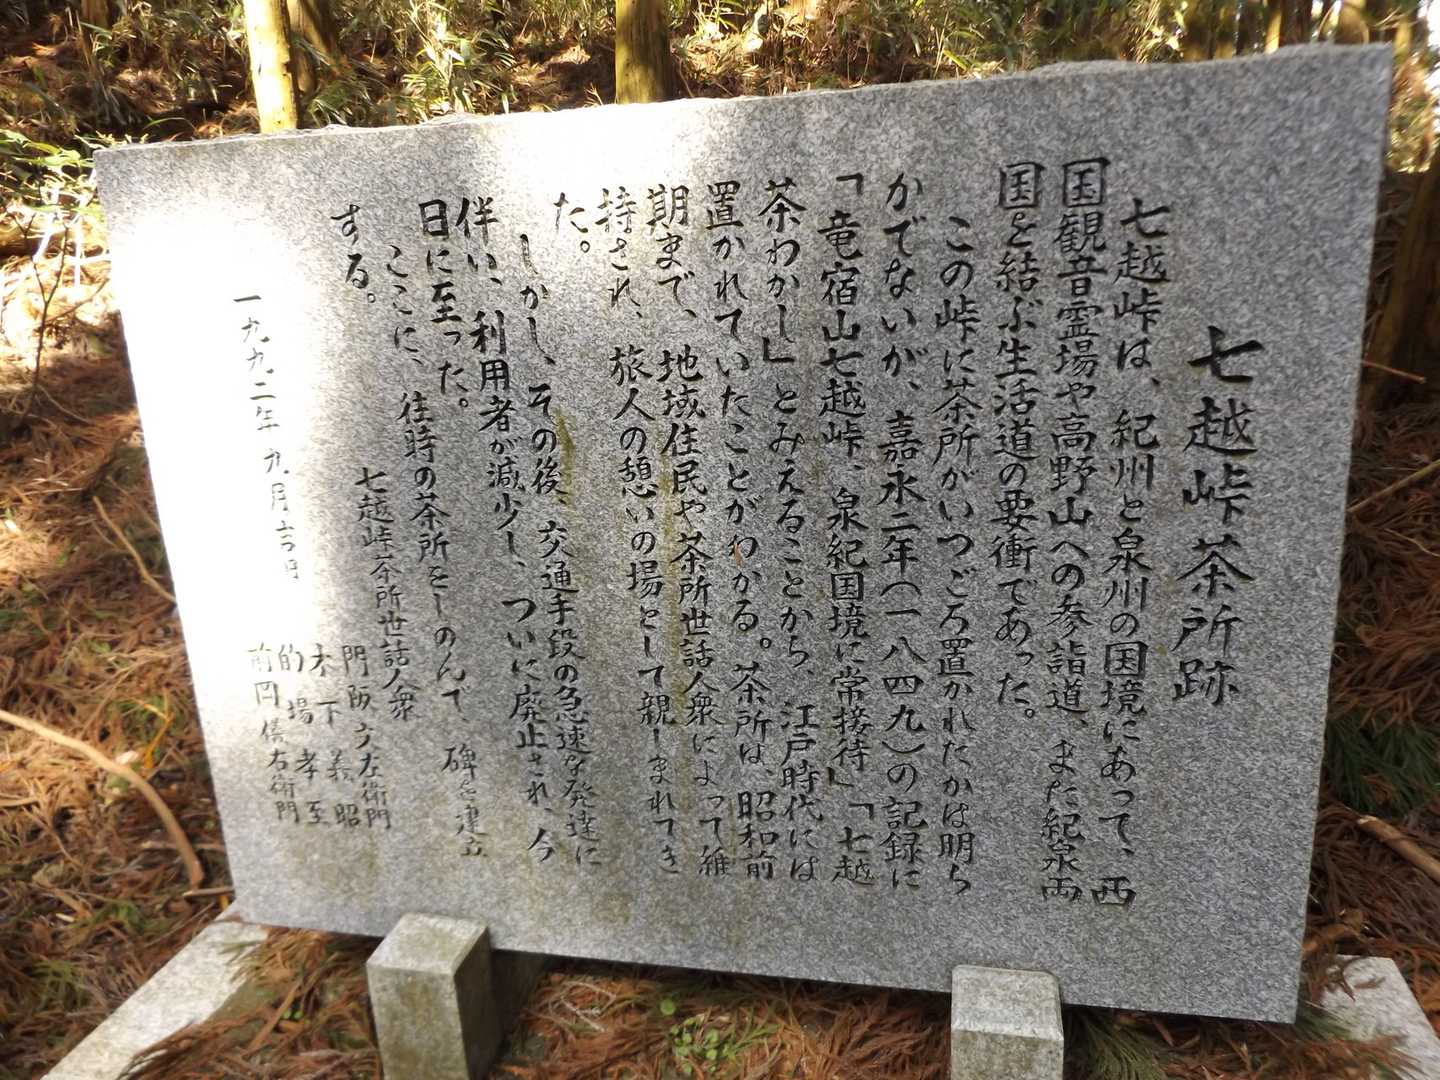 七越峠茶所跡
七越峠は、紀州と泉州の国境にあって、西
国観音霊場や高野山への参詣道、また紀泉両
国を結ぶ生活道の要衝であった。
この峠に茶所がいつごろ置かれたかは明ら
かでないが、嘉永二年(一八四九)の記録に
「竜宿山七越峠、泉紀国境に常接待」「七越
茶わかし」とみえることから、江戸時代には
置かれていたことがわかる。茶所は、昭和前
期まで、地域住民や茶所世話人衆によって維
持され、旅人の憩いの場として親しまれてき
た。
しかし、その後、交通手段の急速な発達に
伴い、利用者が減少し、ついに廃止され、今
日に至った。
ここに、往時の茶所をしのんで、碑を建立
する。
七越峠茶所世話人衆
門阪 左衛門
木下義昭
的場孝至
前岡 右衛門
一九九二年九月吉日